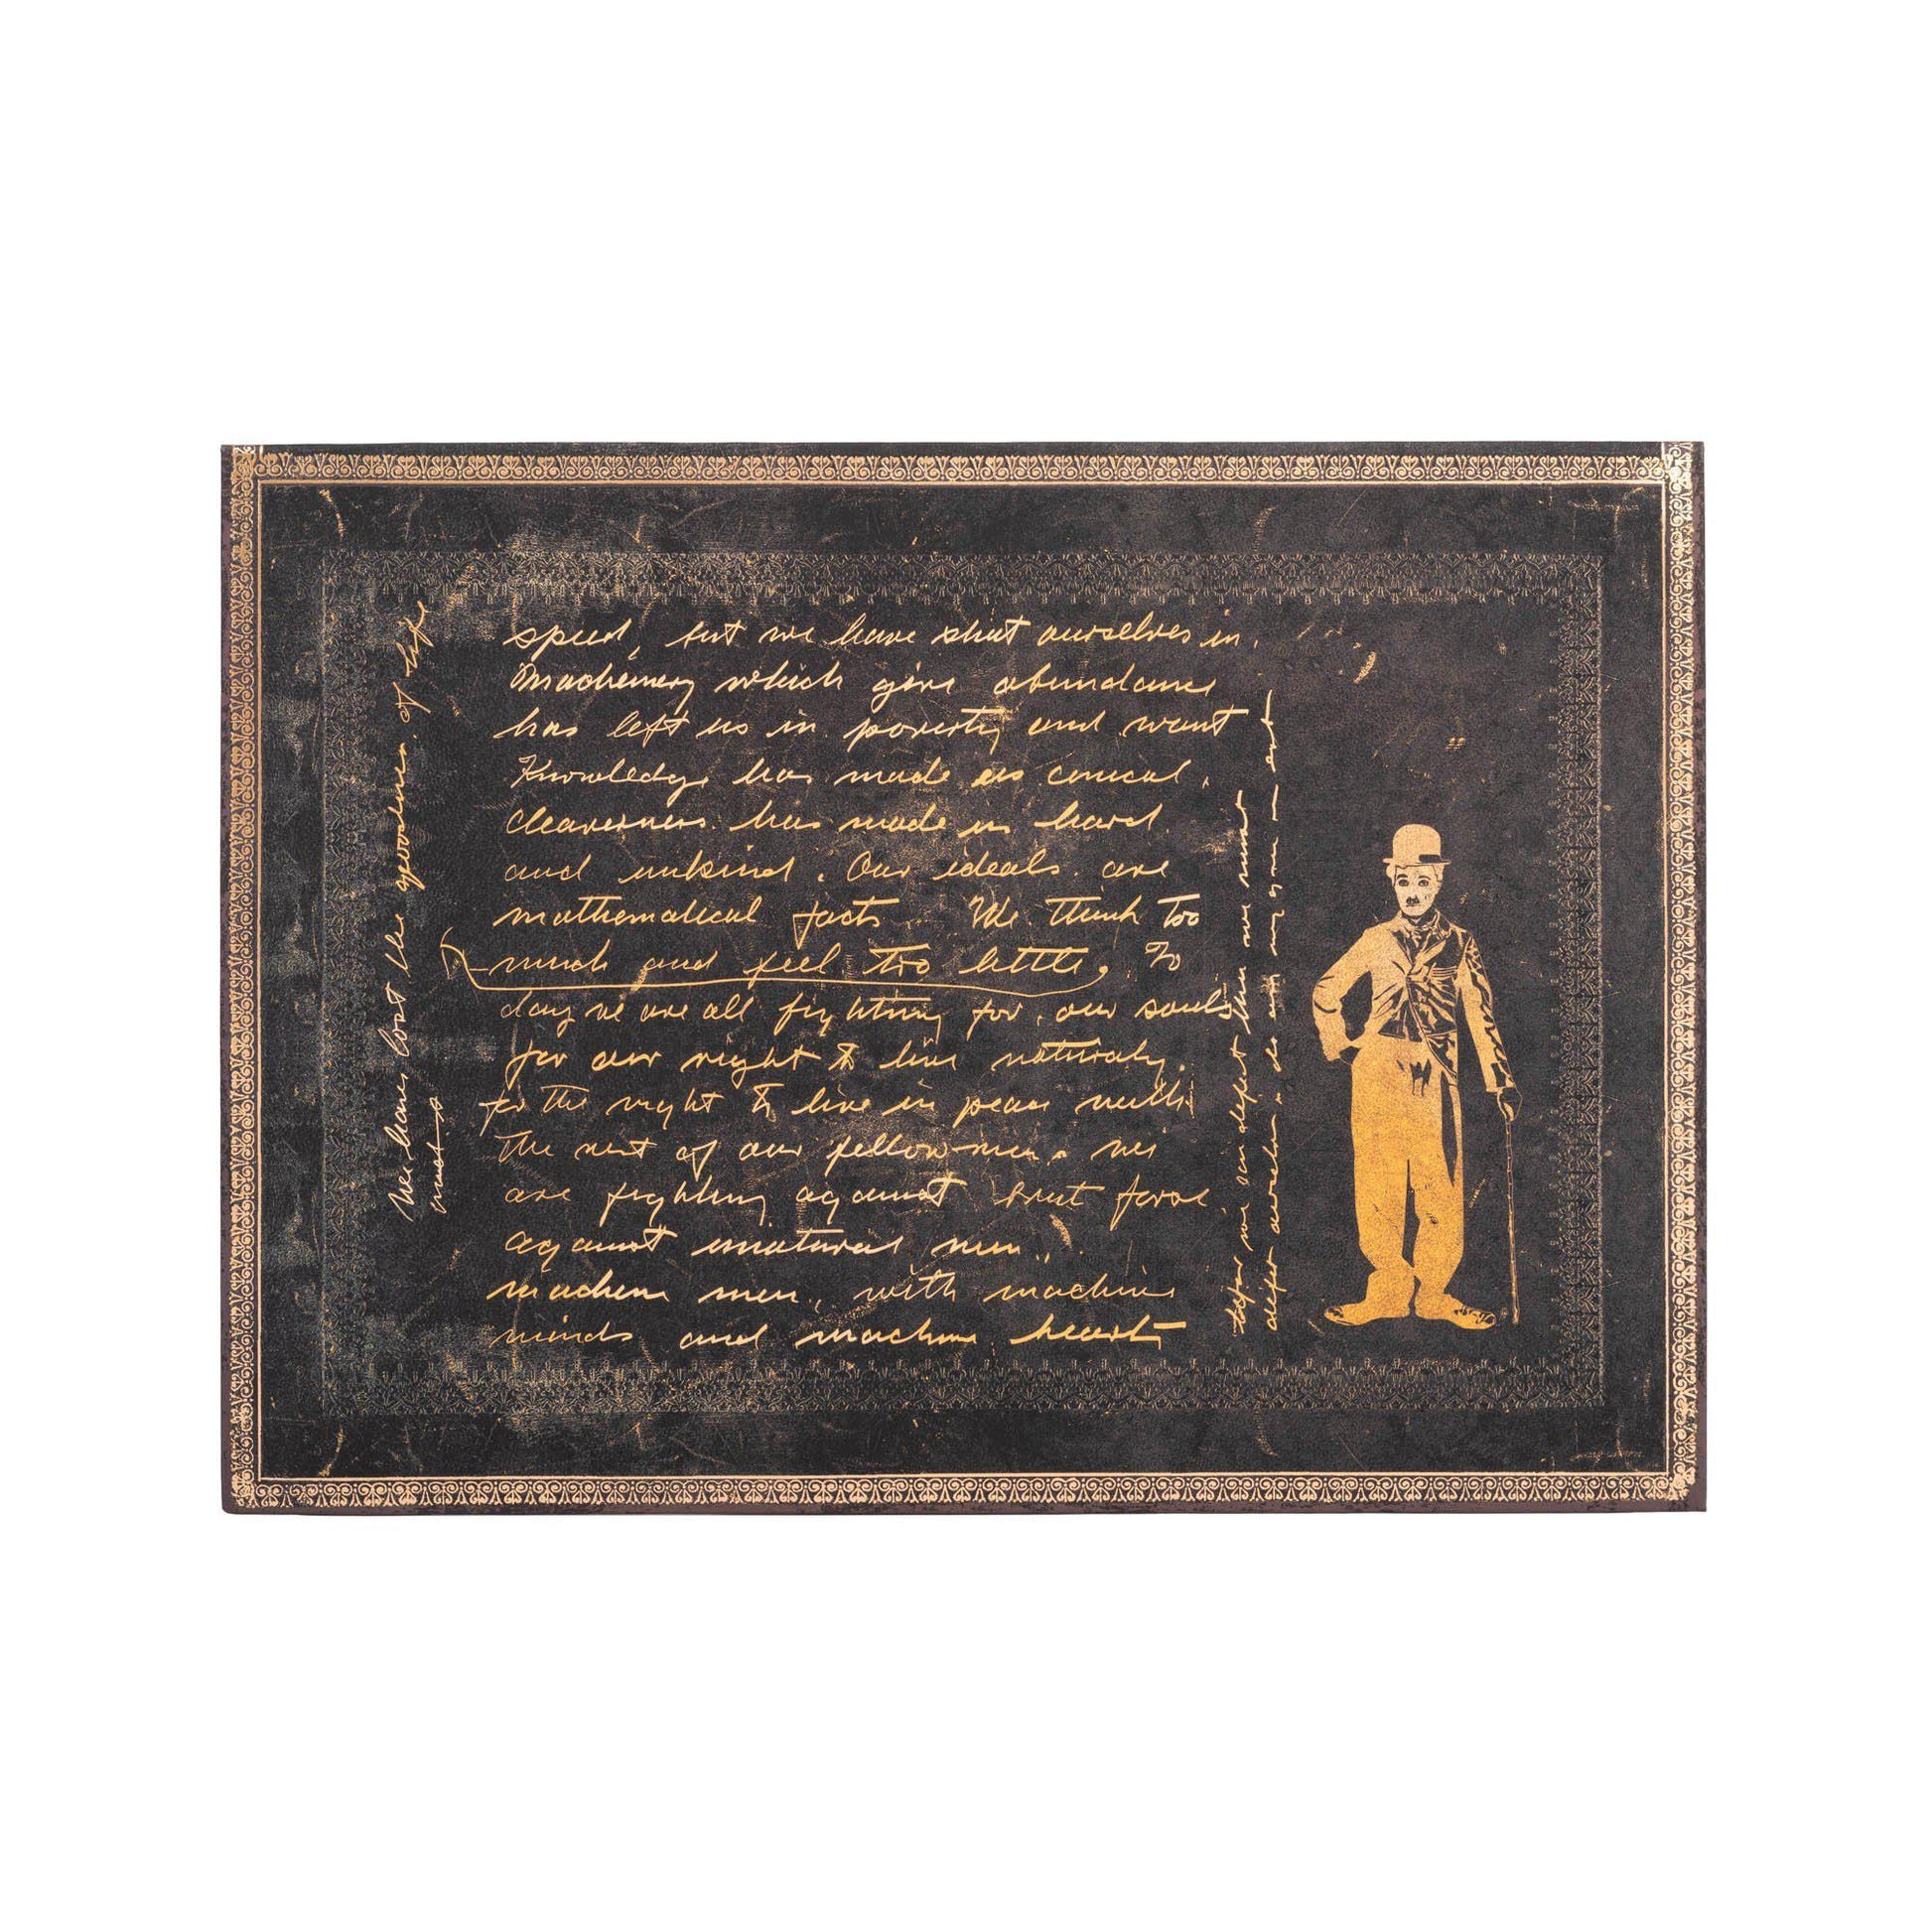 We have lost the goodness of life
speed, but we have shut ourselves in.
Machinery which give abundance
has left us in poverty and want
Knowledge has made us cinical,
cleaverness has made us hard
and unkind. Our ideals are
mathematical facts We think too
much and feel too little. To
day we are all fighting for our souls
for our right to live naturaly.
for the right to live in peace with
the rest of our fellow men. we
are fighting against brut force
against unatural men.
machine men, with machine
minds and machine hearts
before we can defeat them we must